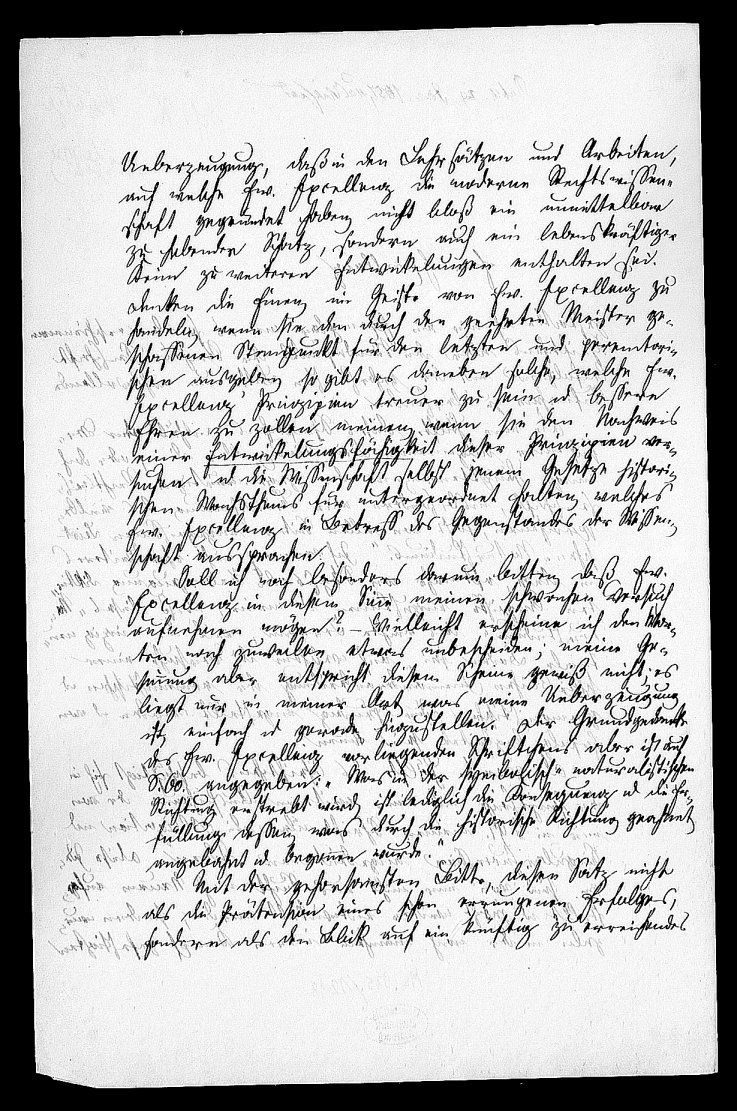 Ueberzeugung, daß in den Lehrsätzen und Arbeiten,
auf welche Ew. Excellenz die moderne Rechtswissen-
schaft gegründet haben nicht bloß ein unmittelbar
zu hebender Schatz, sondern auch ein lebenskräftiger
Keim zu weiteren Entwickelungen enthalten sei.
Denken die Einen im Geiste von Ew. Excellenz zu
handeln, wenn sie den durch den geehrten Meister ge-
schaffenen Standpunkt für den letzten und peremtori-
schen ausgeben, so gibt es daneben solche, welche Ew.
Excellenz' Prinzipien treuer zu sein u. bessere
Ehren zu zollen meinen, wenn sie den Nachweis
einer Entwickelungsfähigkeit dieser Prinzipien ver-
suchen u. die Wissenschaft selbst jenem Gesetze histori-
schen Wachsthums für untergeordnet halten, welches
Ew. Excellenz in Betreff des Gegenstandes der Wissen-
schaft aussprachen.
Soll ich noch besonders darum bitten, daß Ew.
Excellenz in diesem Sinne meinen schwachen Versuch
aufnehmen mögen? – Vielleicht erscheine ich den Wor-
ten nach zuweilen etwas unbescheiden; meine Ge-
sinnung aber entspricht diesem Scheine gewiß nicht; es
liegt nur in meiner Art, was meine Ueberzeugung
ist, einfach u. gerade hinzustellen. Der Grundgedanke
des Ew. Excellenz vorliegenden Schriftchens aber ist auf
S. 60 angegeben: "Was in der naturalistischen
Richtung erstrebt wird, ist lediglich die Konsequenz u. die Er-
füllung dessen was durch die historische Richtung geahnet
angebahnt u. begonnen wurde."
Mit der gehorsamsten Bitte, diesen Satz nicht
als die Prätension eines schon errungenen Erfolges,
sondern als den Blick auf ein künftig zu erreichendes